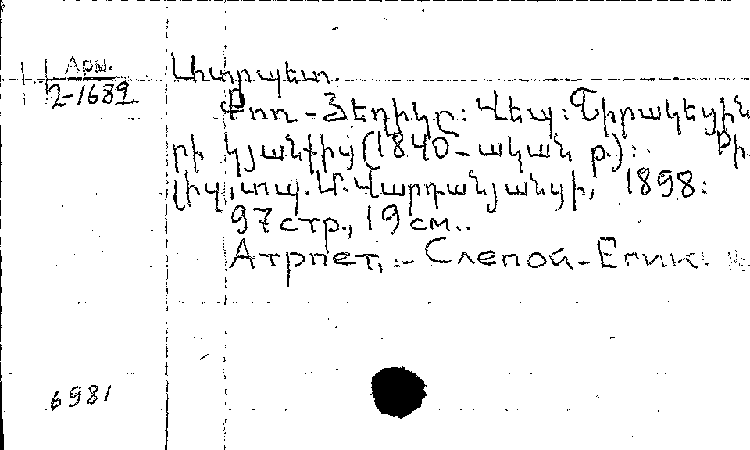 Арм.
2-1689
Ատրպետ.
Քոռ-Յեղիկը: Վեպ: Շիրակեցին
րի կյանքից (1840-ական թ.): Թի
ֆլիզ, տպ. Մ. Վարդանյանցի, 1898:
97 стр., 19 см..
Атрпет. - Слепой-Егик.
6981